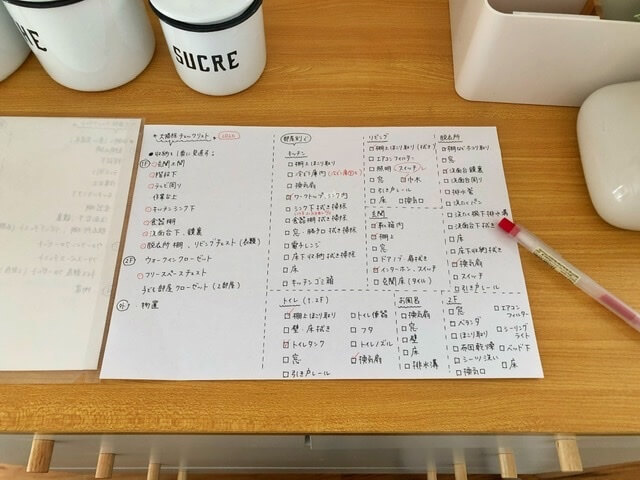 RE
SUCRE
大掃除チェックリスト
部屋別に
リビング
脱衣所
キッチン
棚上ほこり取り
冷ぞう庫内
換気扇
ワークトップ、シンク内
シンク下拭き掃除
食器棚拭き掃除
窓・勝手口拭き掃除
電子レンジ
床下収納拭き掃除
床
キッチンゴミ箱
収納を1番に見直す!
1F
玄関土間
階段下
テレビ周り
作業台上
キッチンシンク下
食器棚
洗面台下、鏡裏
脱衣所棚、リビングチェスト(衣類)
2F
ウォークインクローゼット
フリースペースチェスト
子ども部屋クローゼット(2部屋)
外
物置
エアコンフィルター
照明(スイッチ)
窓
巾木
引き戸レール
床
換気口
玄関
靴箱内
棚上
窓
ドアノブ
インターホン、スイッチ
玄関床(タイル)
窓
洗面台鏡裏
洗面台周り
排水管
洗たくパン
洗たく機下排水溝
洗面台下拭き
床
床下収納拭き
換気扇
スイッチ
引き戸レール
トイレ(1.2F)
棚上ほこり取り
壁、床拭き
トイレタンク
窓
引き戸レール
トイレ便器
フタ
トイレノズル
換気扇
お風呂
換気扇
窓
壁
床
排水溝
2F
窓
ベランダ
ほこり取り
布団乾燥
シーツ洗い
換気口
エアコン
フィルター
シーリング
ライト
ベッド下
床